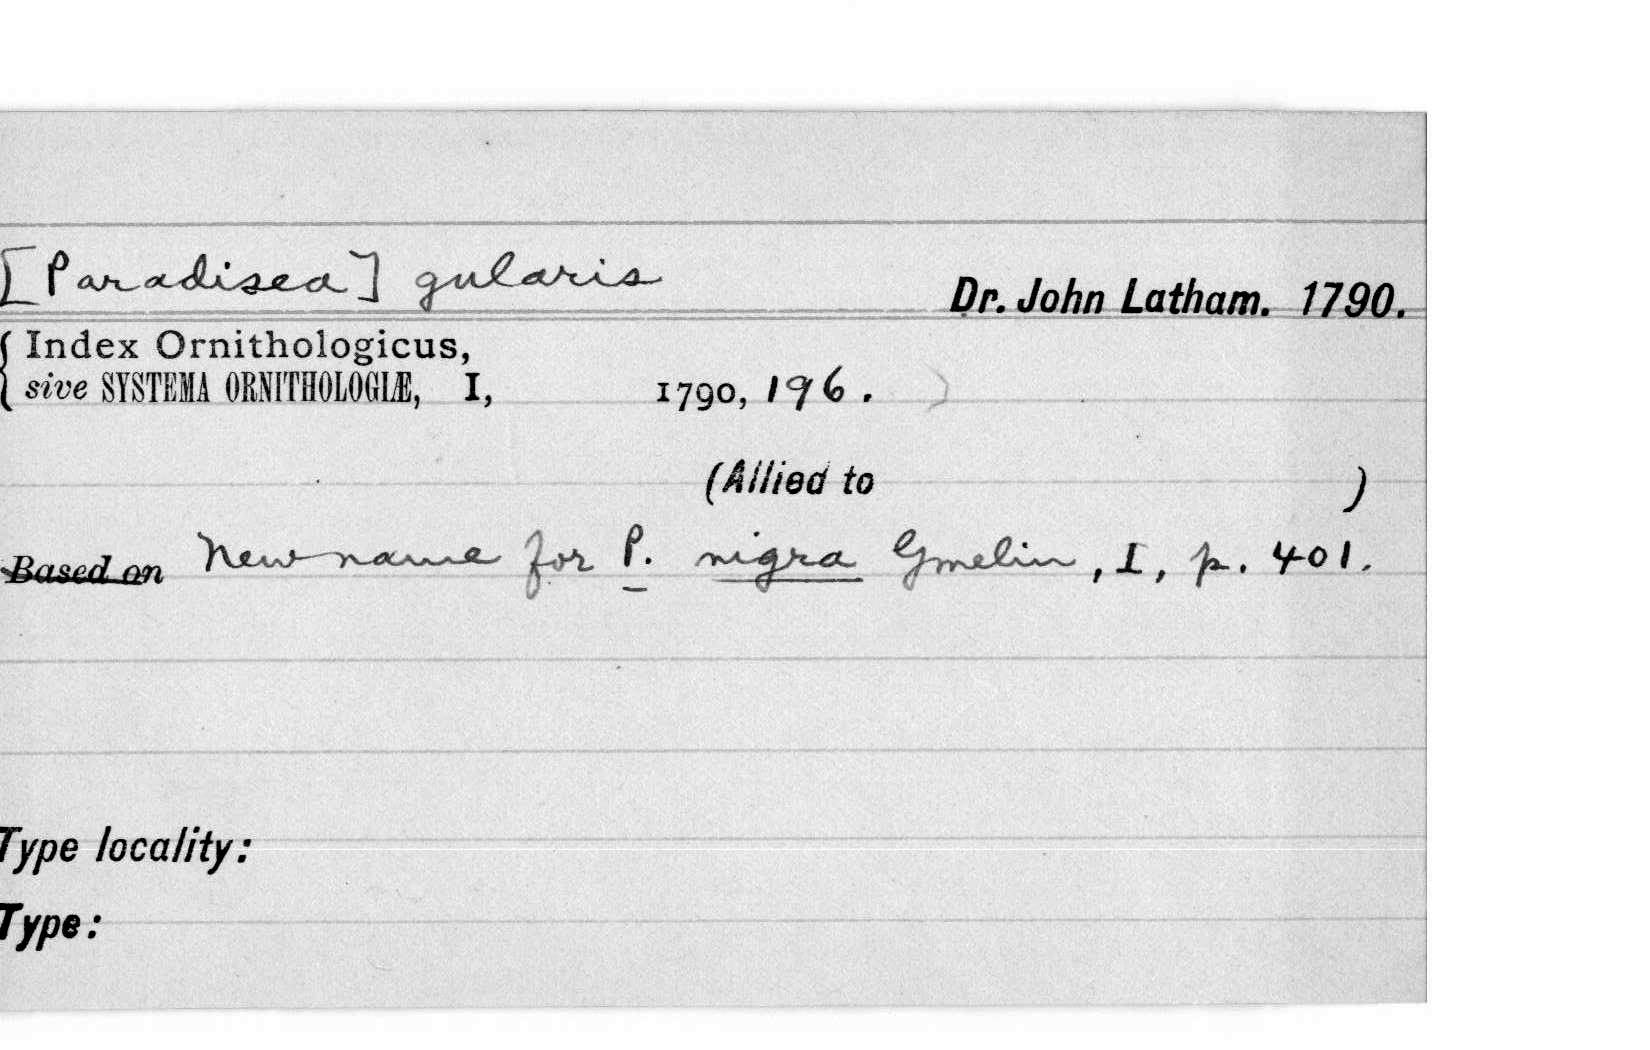 [Paradisea] gularis Dr. John Latham. 1790.
Index Ornithologicus,
sive SYSTEMA ORNITHOLOGIÆ, I, 1790, 196.
(Allied to )
Based on New name for P. nigra Gmelin, I, p. 401.
Type locality:
Type: